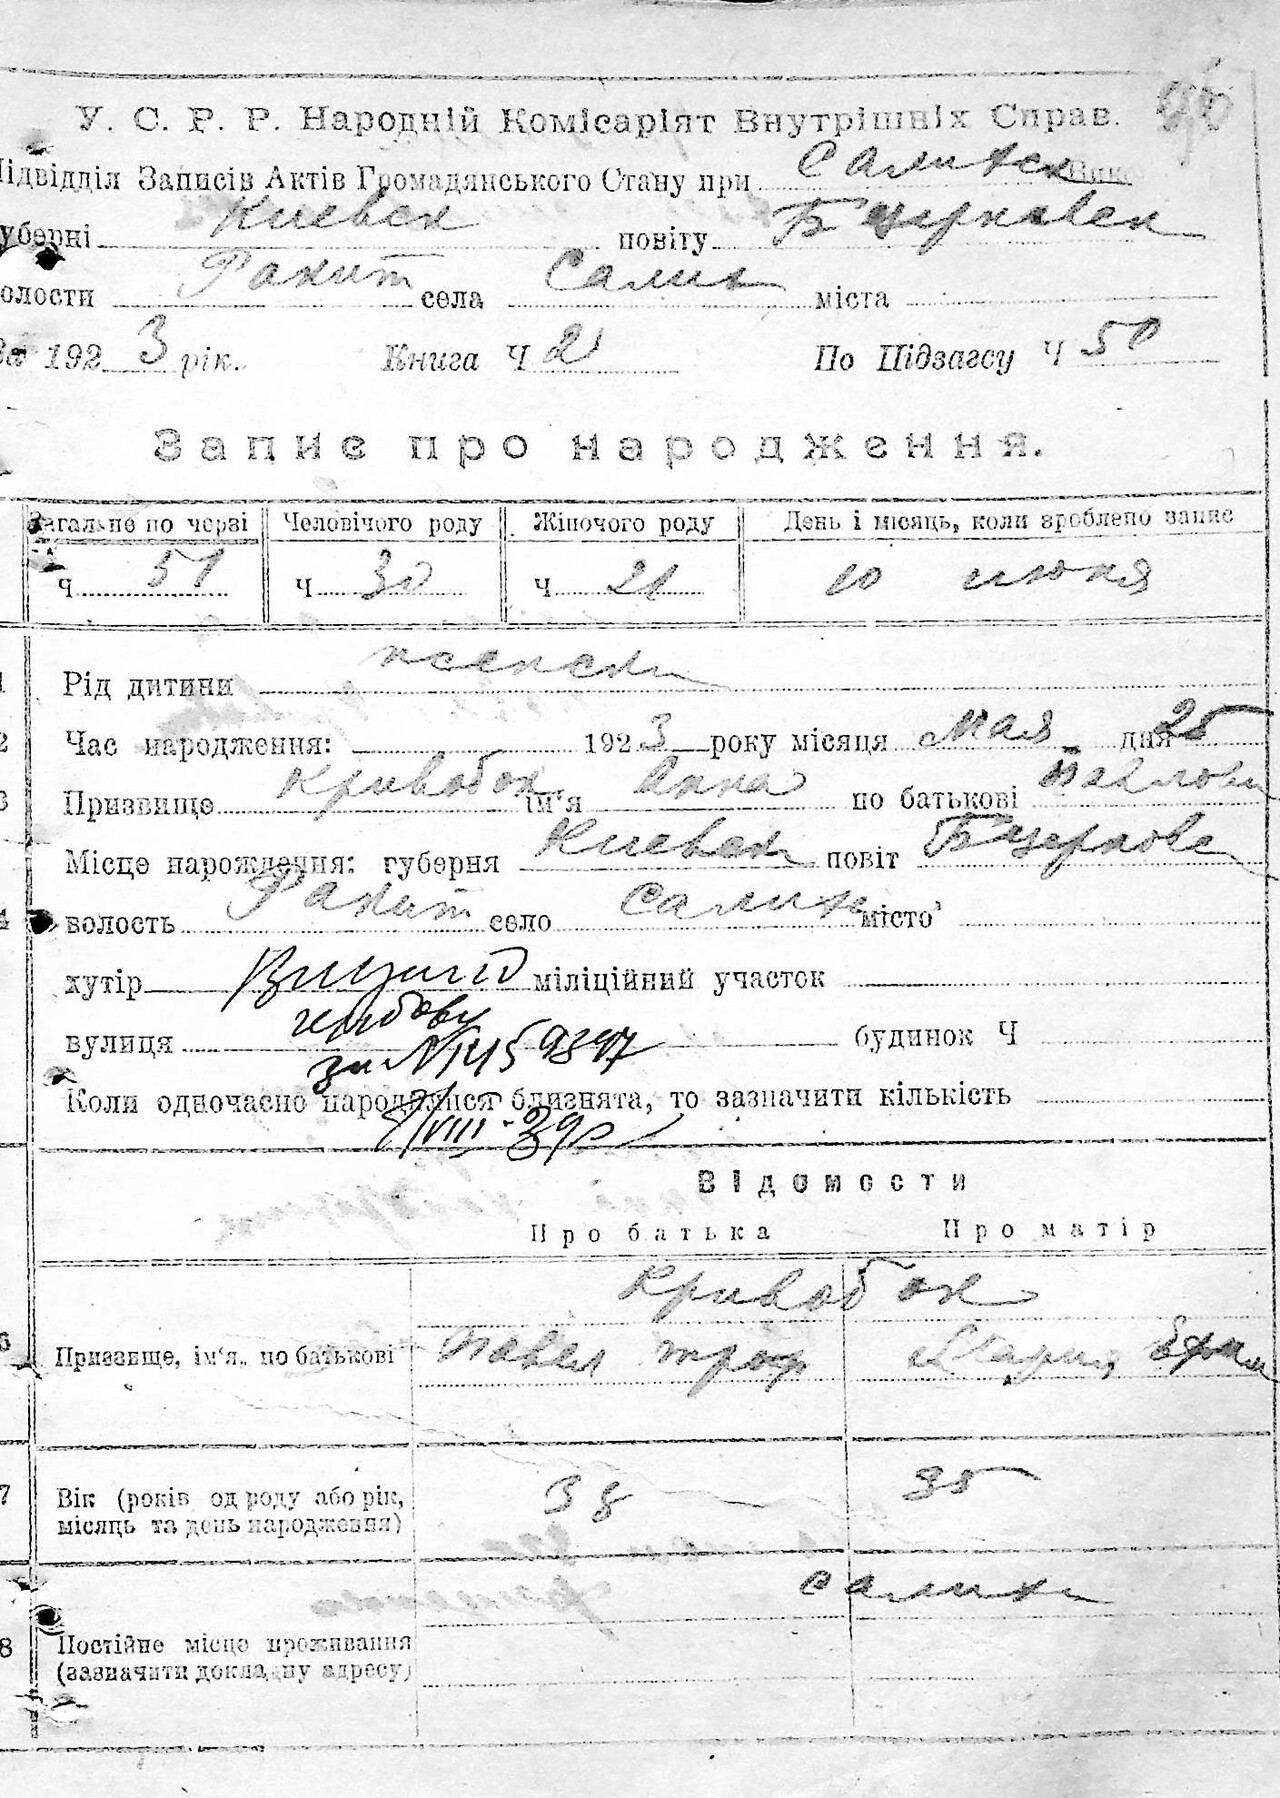 У. С. Р. Р. Народній Комісаріят Внутрішніх Справ.
Підвідділ Записів Актів Громадянського Стану при Салинск Вик
губерні Киевск повіту Б Церковск
волости Ракит села Салиха міста
За 1923 рік. Книга Ч 2 По Підзагсу Ч 51
Запис про народження.
Загальне по черзі Человічого роду Жіночого роду День і місяць, коли зроблено запис
Ч 51 Ч 30 Ч 21 10 июня
1 Рід дитини женски
2 Час народження: 1923 року місяця мая дня 25
3 Призвище Кривобок ім'я Анна по батькові Павловн
Місце нарождення: губерня Киевск повіт Б Церковс
4 волость Ракит село Салиха місто
хутір Видано міліційний участок
вулиця гербову будинок Ч
за №1459897
Коли одночасно народилися близнята, то зазначити кількість
7/VIII-39р
Відомости
Про батька Про матір
Кривобок
6 Призвище, ім'я, по батькові Павел Троф Мария Ефим
7 Вік (років од роду або рік, 38 35
місяць та день народження)
Салиха
8 Постійне місце проживання
(зазначити докладну адресу)